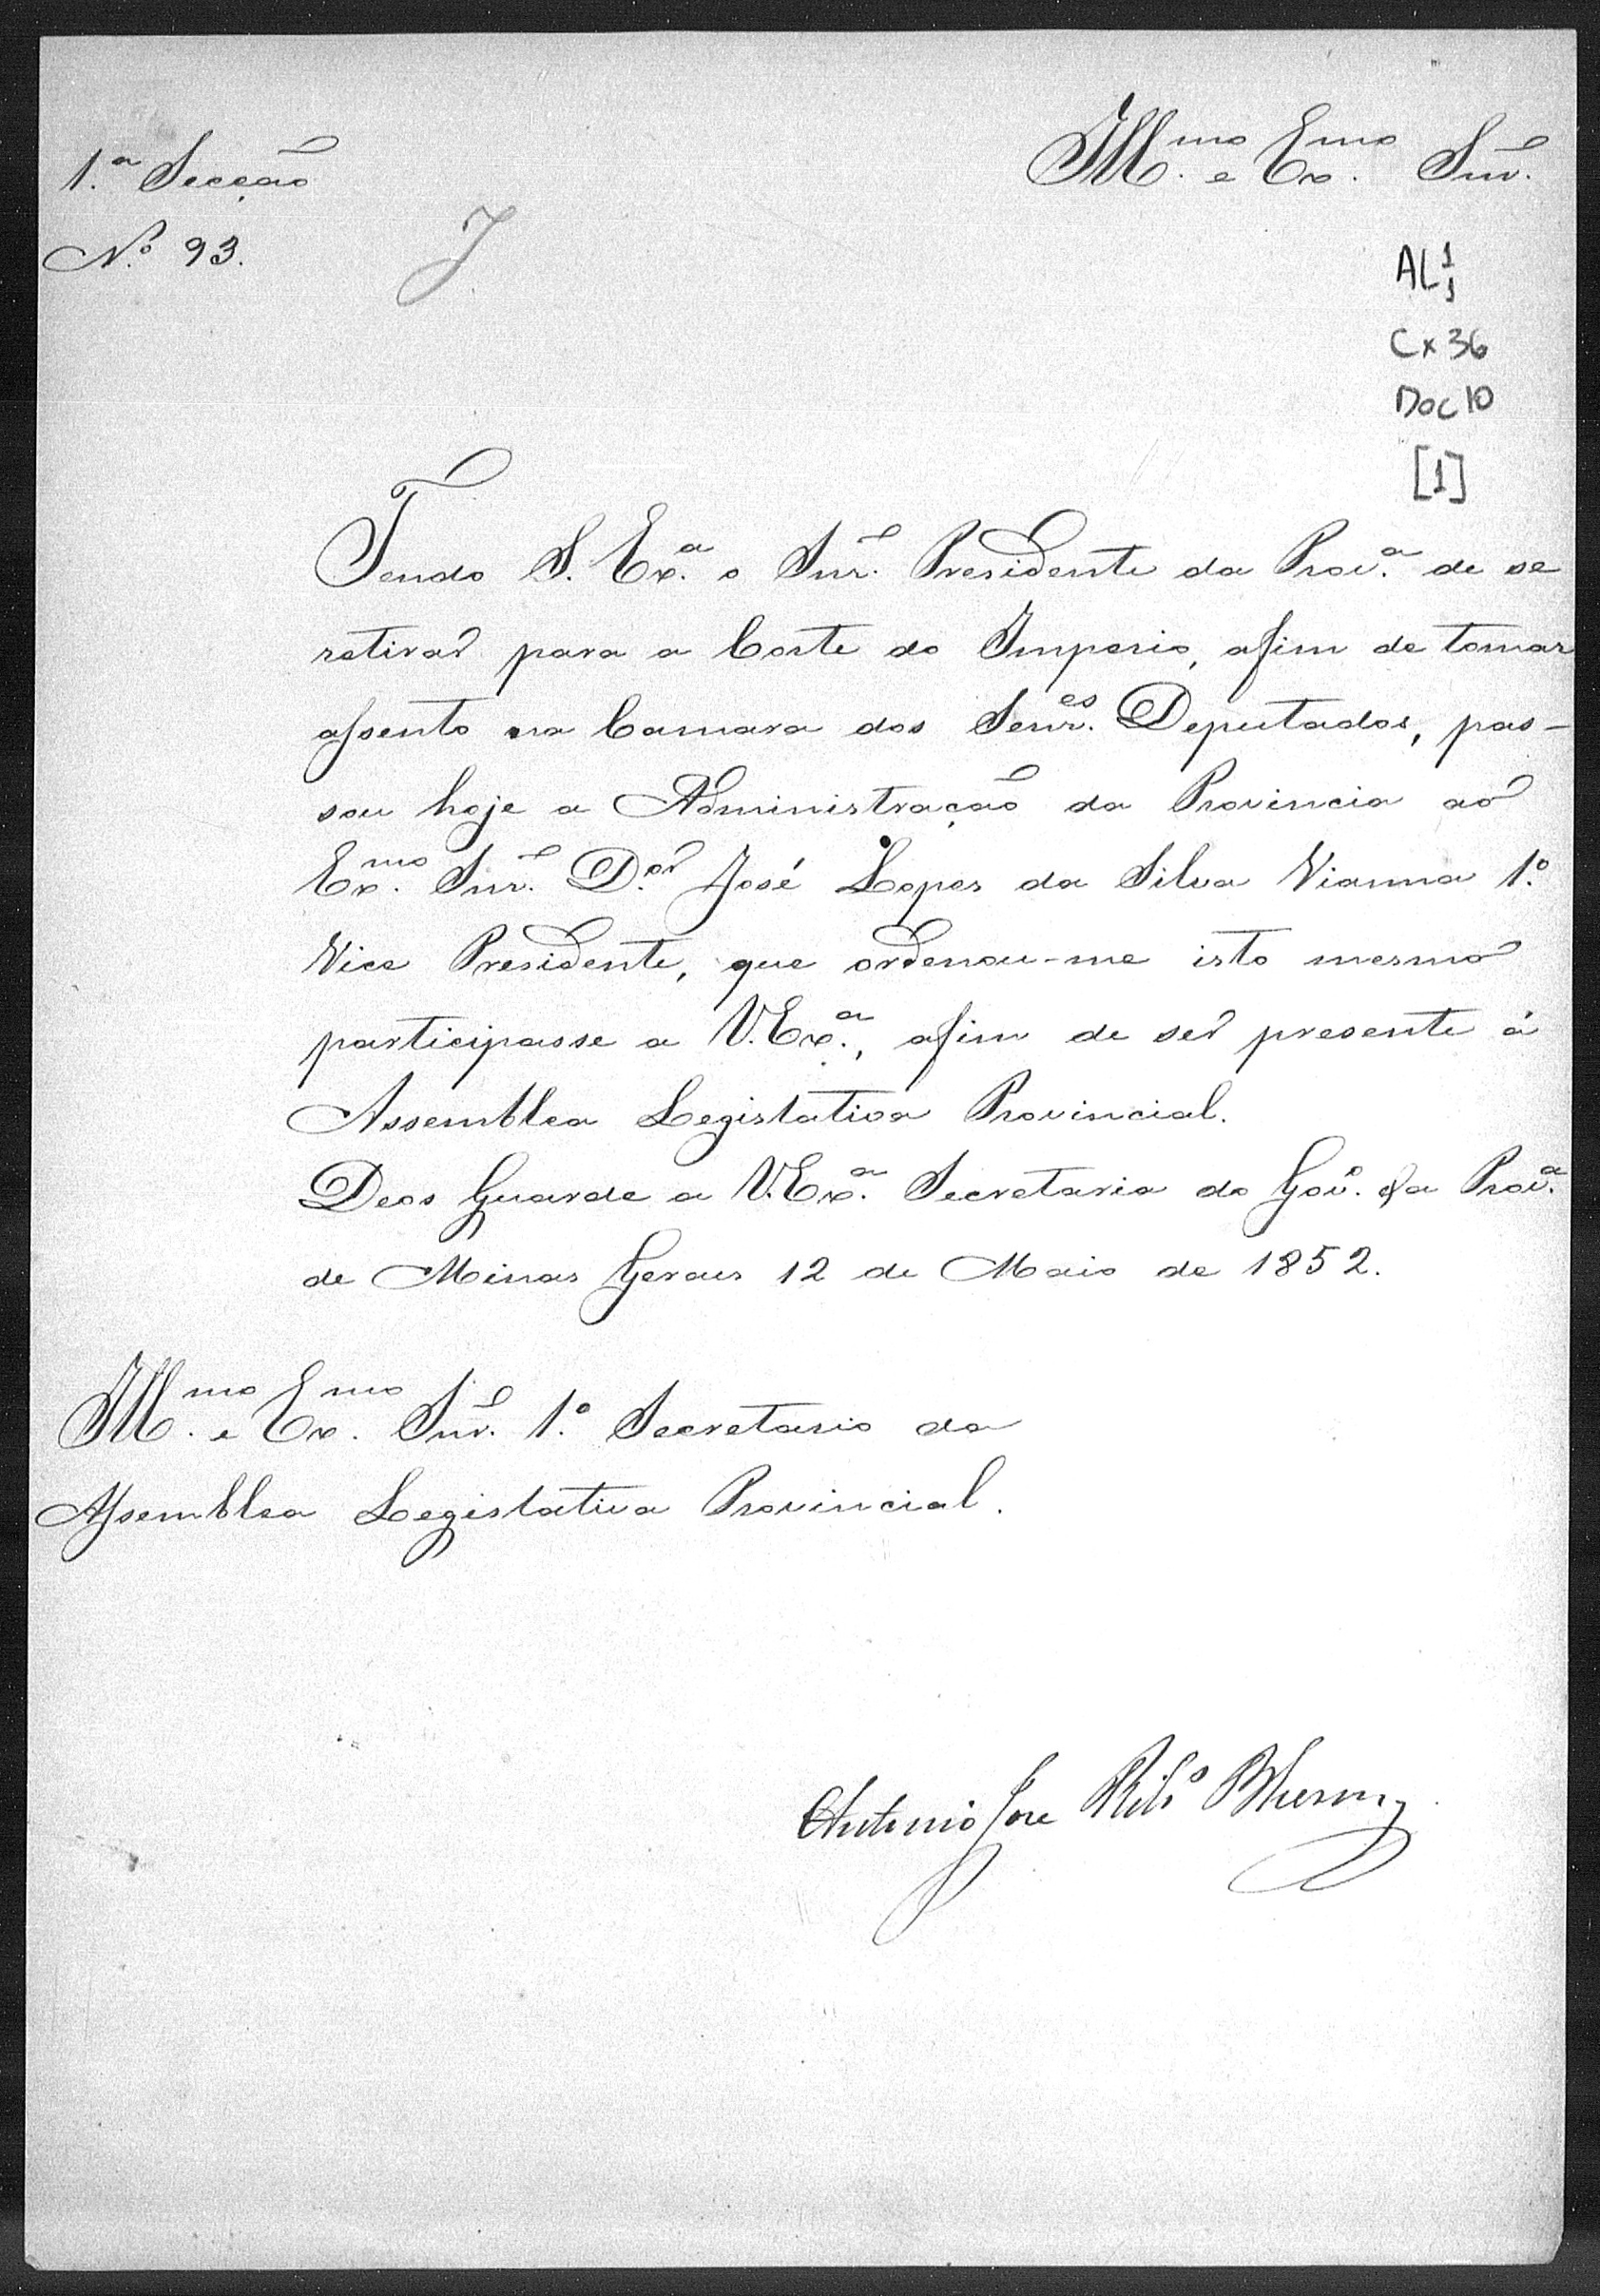 1.ª Secção
N.º 93.
Ill.mo e Ex.mo Snr.
J
AL 1
1
Cx 36
Doc 10
[1]
Tendo S. Ex.ª o Snr. Presidente da Prov.ª de se
retirar para a Corte do Imperio, afim de tomar
assento na Camara dos Senr.es Deputados, pas-
sou hoje a Administração da Provincia ao
Ex.mo Snr. D.or José Lopes da Silva Vianna 1.º
Vice Presidente, que ordenou-me isto mesmo
participasse a V. Ex.ª, afim de ser presente á
Assemblea Legislativa Provincial.
Deos Guarde a V. Ex.ª Secretaria do Gov.º da Prov.ª
de Minas Geraes 12 de Maio de 1852.
Ill.mo e Ex.mo Snr. 1.º Secretario da
Assemblea Legislativa Provincial.
Antonio José Rib.º Bhering